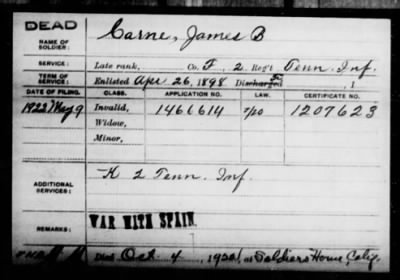 DEAD
NAME OF SOLDIER: Carne, James B
SERVICE: Late rank, Co. F, 2 Reg't Tenn. Inf.
TERM OF SERVICE: Enlisted Apr. 26, 1898 Discharged , 1
DATE OF FILING. CLASS. APPLICATION NO. LAW. CERTIFICATE NO.
1922 May 9 Invalid, 1466614 1207623
Widow,
Minor,
ADDITIONAL SERVICES: K 2 Tenn. Inf.
REMARKS: WAR WITH SPAIN.
Died Oct. 4, at Soldiers Home, Calif.